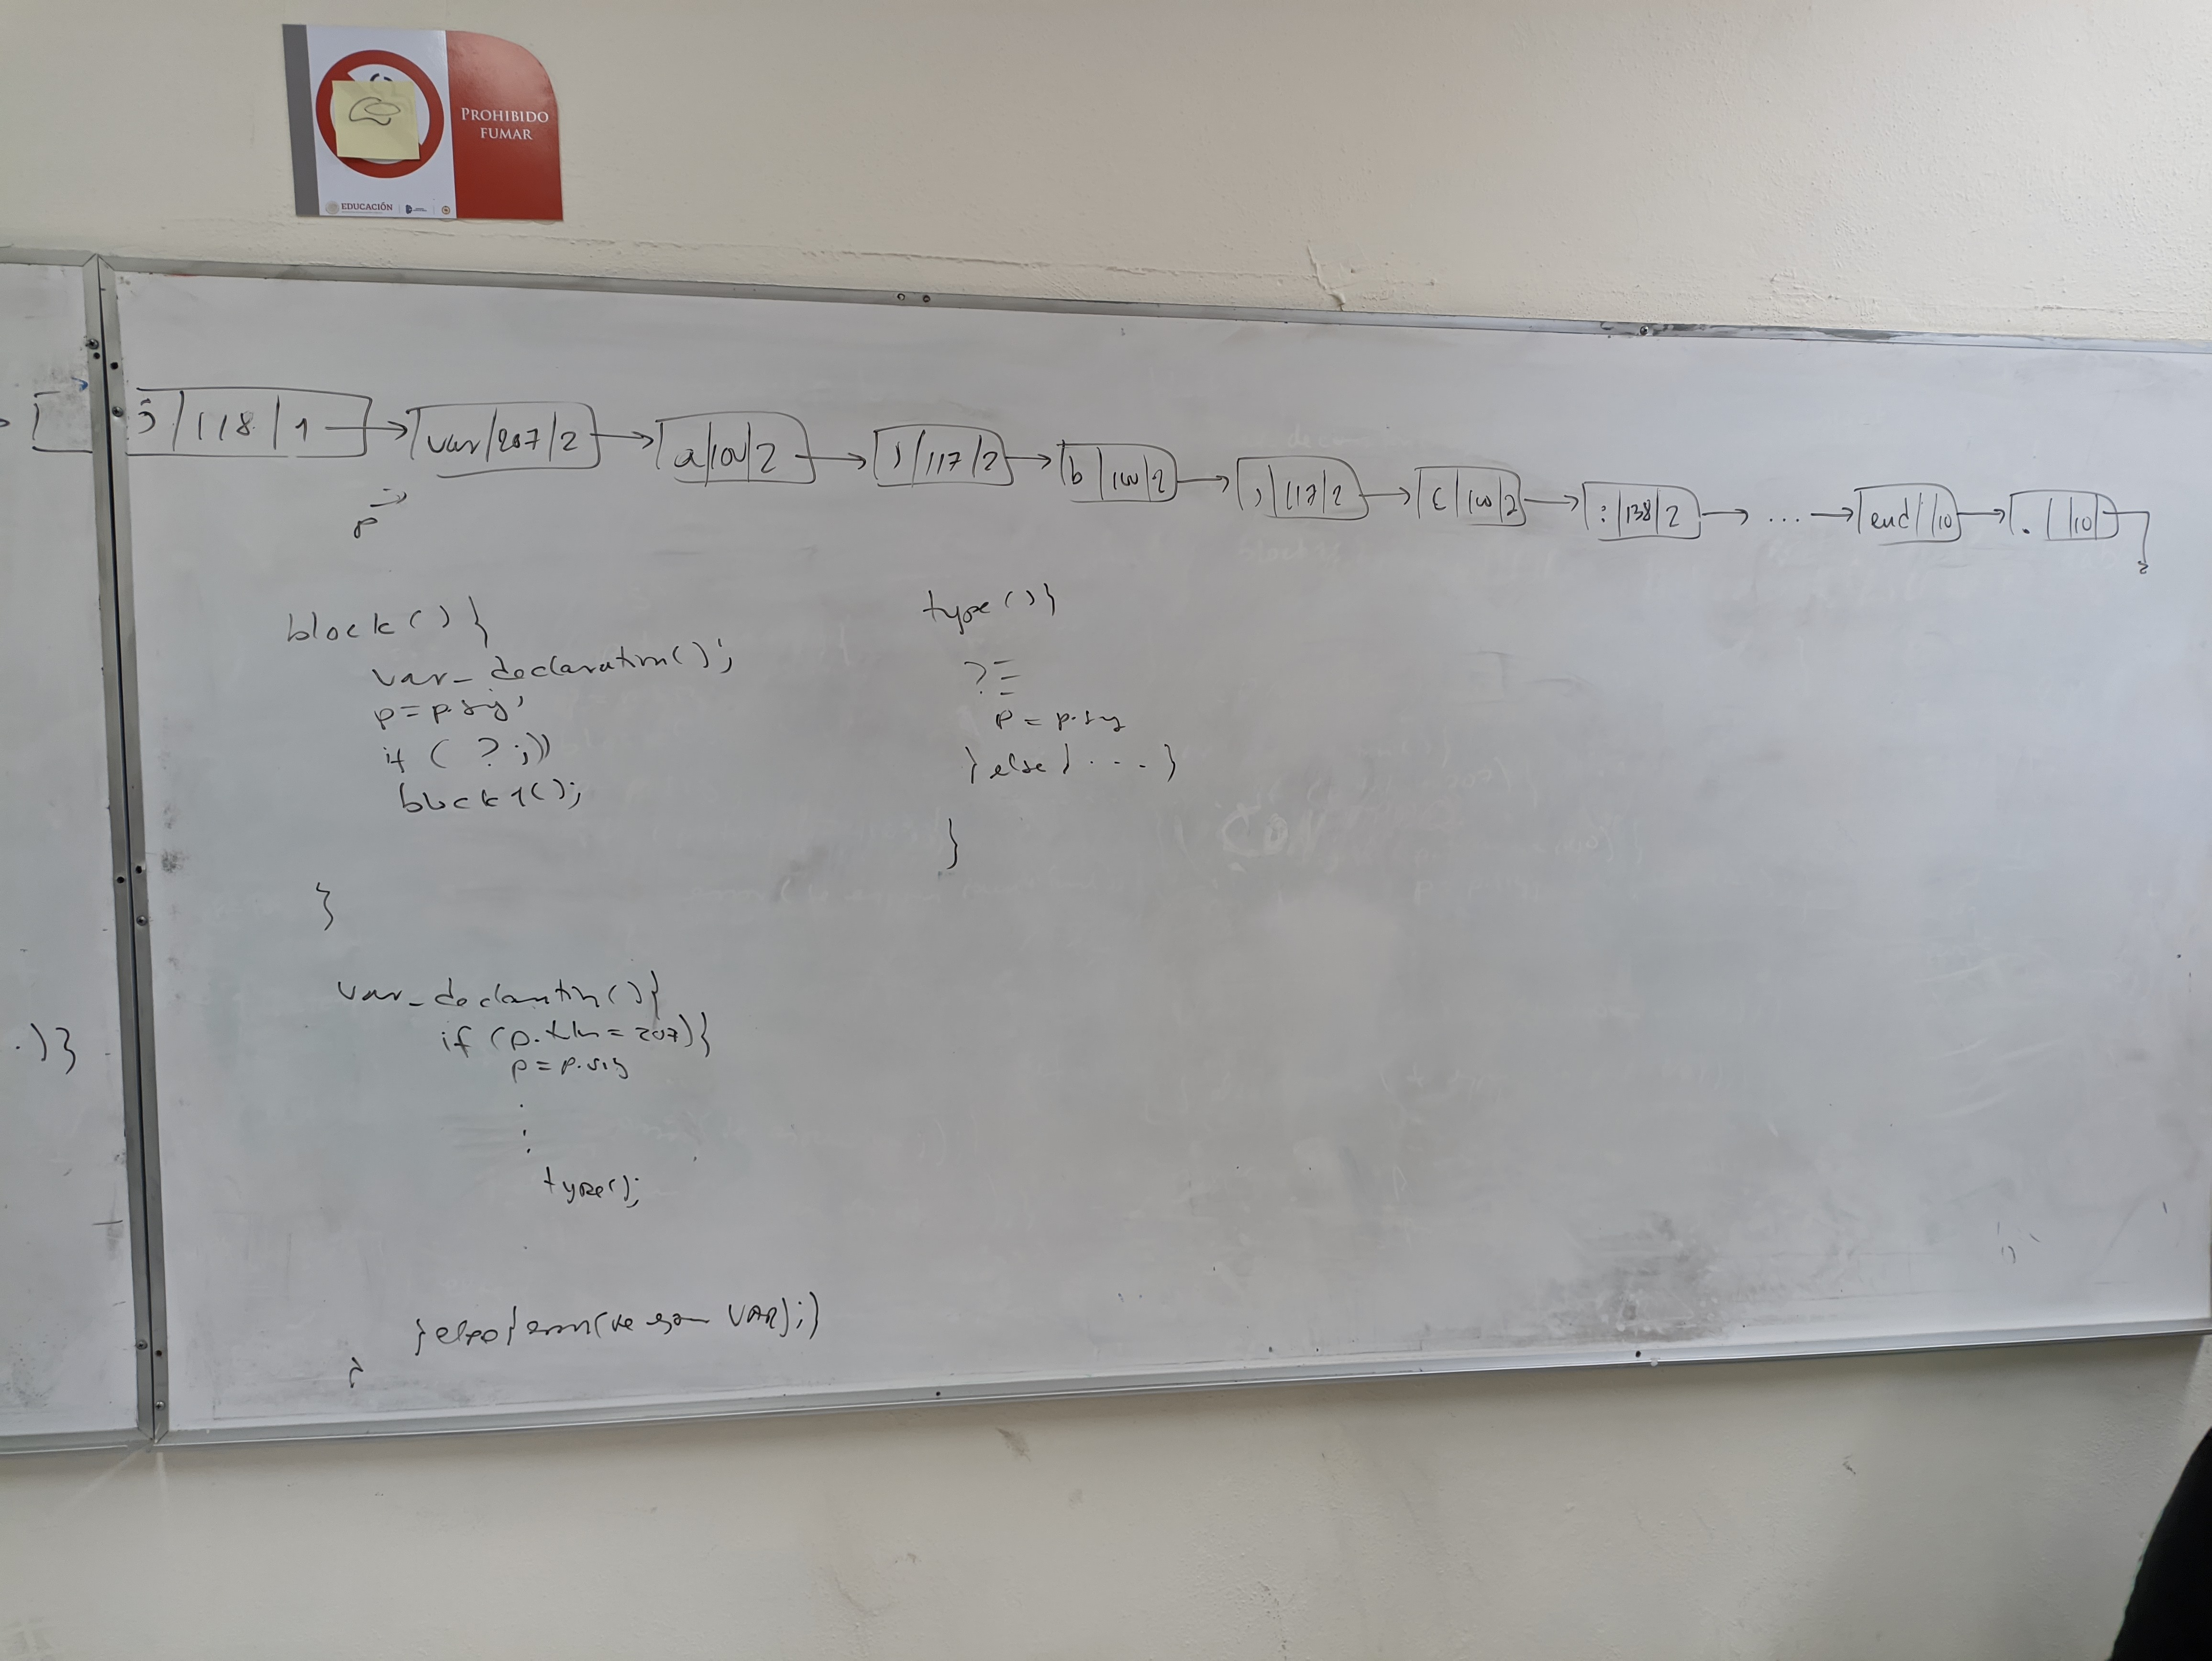 PROHIBIDO
FUMAR
EDUCACIÓN
; | 118 | 1 → var | 207 | 2 → a | 100 | 2 → , | 117 | 2 → b | 100 | 2 → , | 117 | 2 → c | 100 | 2 → : | 138 | 2 → ... → end | | 10 → . | | 10 |
p →
block () {
var_declaration();
p = p.sig;
if ( ? ;))
block1();
}
var_declaratin(){
if (p.tkn = 207)}
p = p.sig
.
:
type();
}else{ (se VAR);}
}
type () {
? =
p = p.sig
}else{ .... }
}
.)}